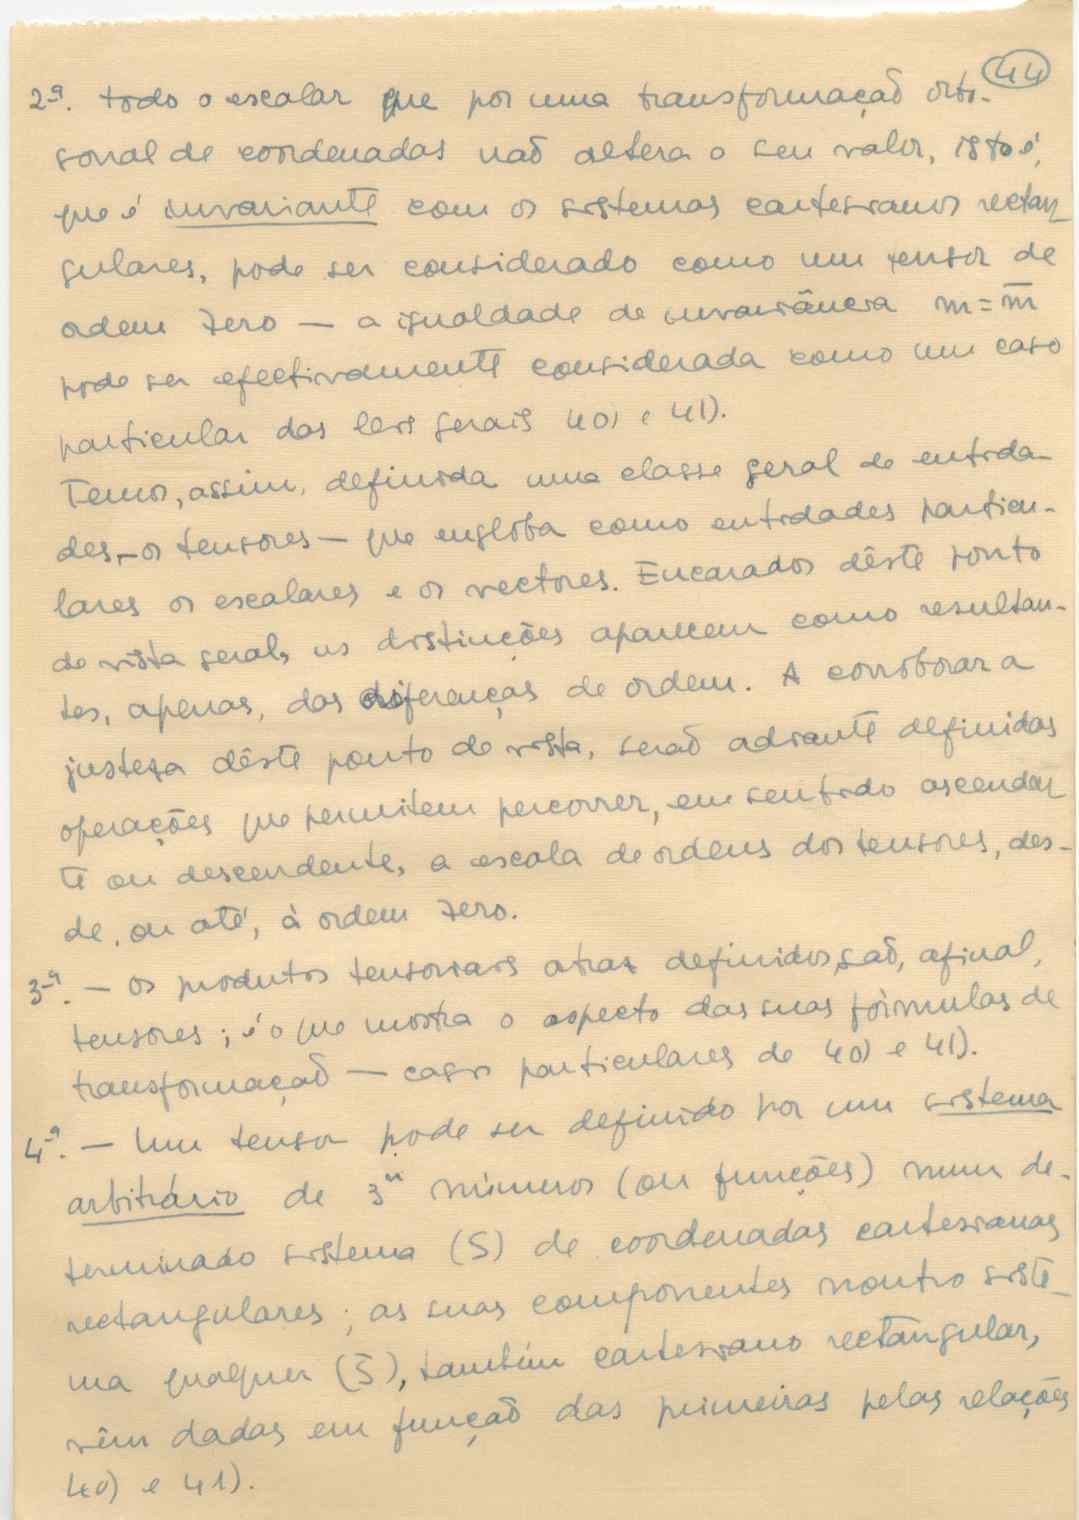 44
2ª. todo o escalar que por uma transformação orto-
gonal de coordenadas não altera o seu valor, isto é,
que é invariante com os sistemas cartesianos rectan-
gulares, pode ser considerado como um tensor de
ordem zero — a igualdade de invariância m = m̅
pode ser efectivamente considerada como um caso
particular das leis gerais 40) e 41).
Temos, assim, definida uma classe geral de entida-
des — os tensores — que engloba como entidades particu-
lares os escalares e os vectores. Encarados dêste ponto
de vista geral, as distinções aparecem como resultan-
tes, apenas, das diferenças de ordem. A corroborar a
justeza dêste ponto de vista, serão adiante definidas
operações que permitem percorrer, em sentido ascendan-
te ou descendente, a escala de ordens dos tensores, des-
de, ou até, à ordem zero.
3ª. — Os produtos tensoriais atraz definidos, são, afinal,
tensores; é o que mostra o aspecto das suas fòrmulas de
transformação — casos particulares de 40) e 41).
4ª. — Um tensor pode ser definido por um sistema
arbitrário de 3ⁿ números (ou funções) num de-
terminado sistema (S) de coordenadas cartesianas
rectangulares; as suas componentes noutro siste-
ma qualquer (S̅), também cartesiano rectangular,
vêm dadas em função das primeiras pelas relações
40) e 41).